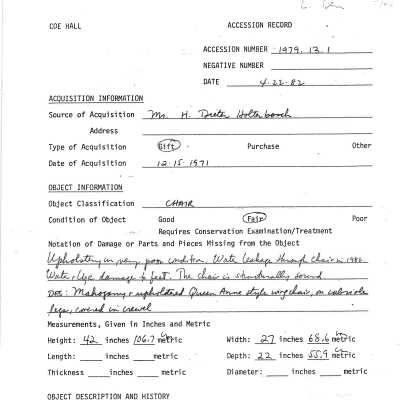 COE HALL ACCESSION RECORD
ACCESSION NUMBER 1979.13.1
NEGATIVE NUMBER
DATE 4-22-82
ACQUISITION INFORMATION
Source of Acquisition Mr. H. Dieter Holterbosch
Address
Type of Acquisition Gift Purchase Other
Date of Acquisition 12-15-1971
OBJECT INFORMATION
Object Classification CHAIR
Condition of Object Good Fair Poor
Requires Conservation Examination/Treatment
Notation of Damage or Parts and Pieces Missing from the Object
Upholstery in very poor condition. Water leakage through chair in 1980.
Water & Use damage to feet. The chair is structurally sound
DES: Mahogany & upholstered Queen Anne style wing chair, on cabriole
legs, covered in crewel
Measurements, Given in Inches and Metric
Height: 42 inches 106.7 metric Width: 27 inches 68.6 metric
Length: inches metric Depth: 22 inches 55.9 metric
Thickness inches metric Diameter: inches metric
OBJECT DESCRIPTION AND HISTORY